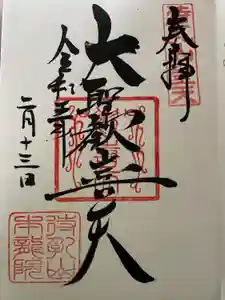 奉拝
大聖歓喜天
令和三年
二月十三日
待乳山
本龍院